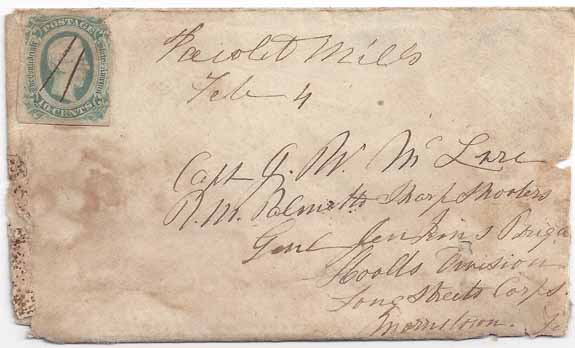 POSTAGE
CONFEDERATE STATES OF AMERICA
10 CENTS
Pacolet Mills
Feb 4
Capt J. W. McLure
R.M. Palmetto Sharp Shooters
Genl Jenkins Briga
Hoods Division
Longstreets Corps.
Morristown. Te